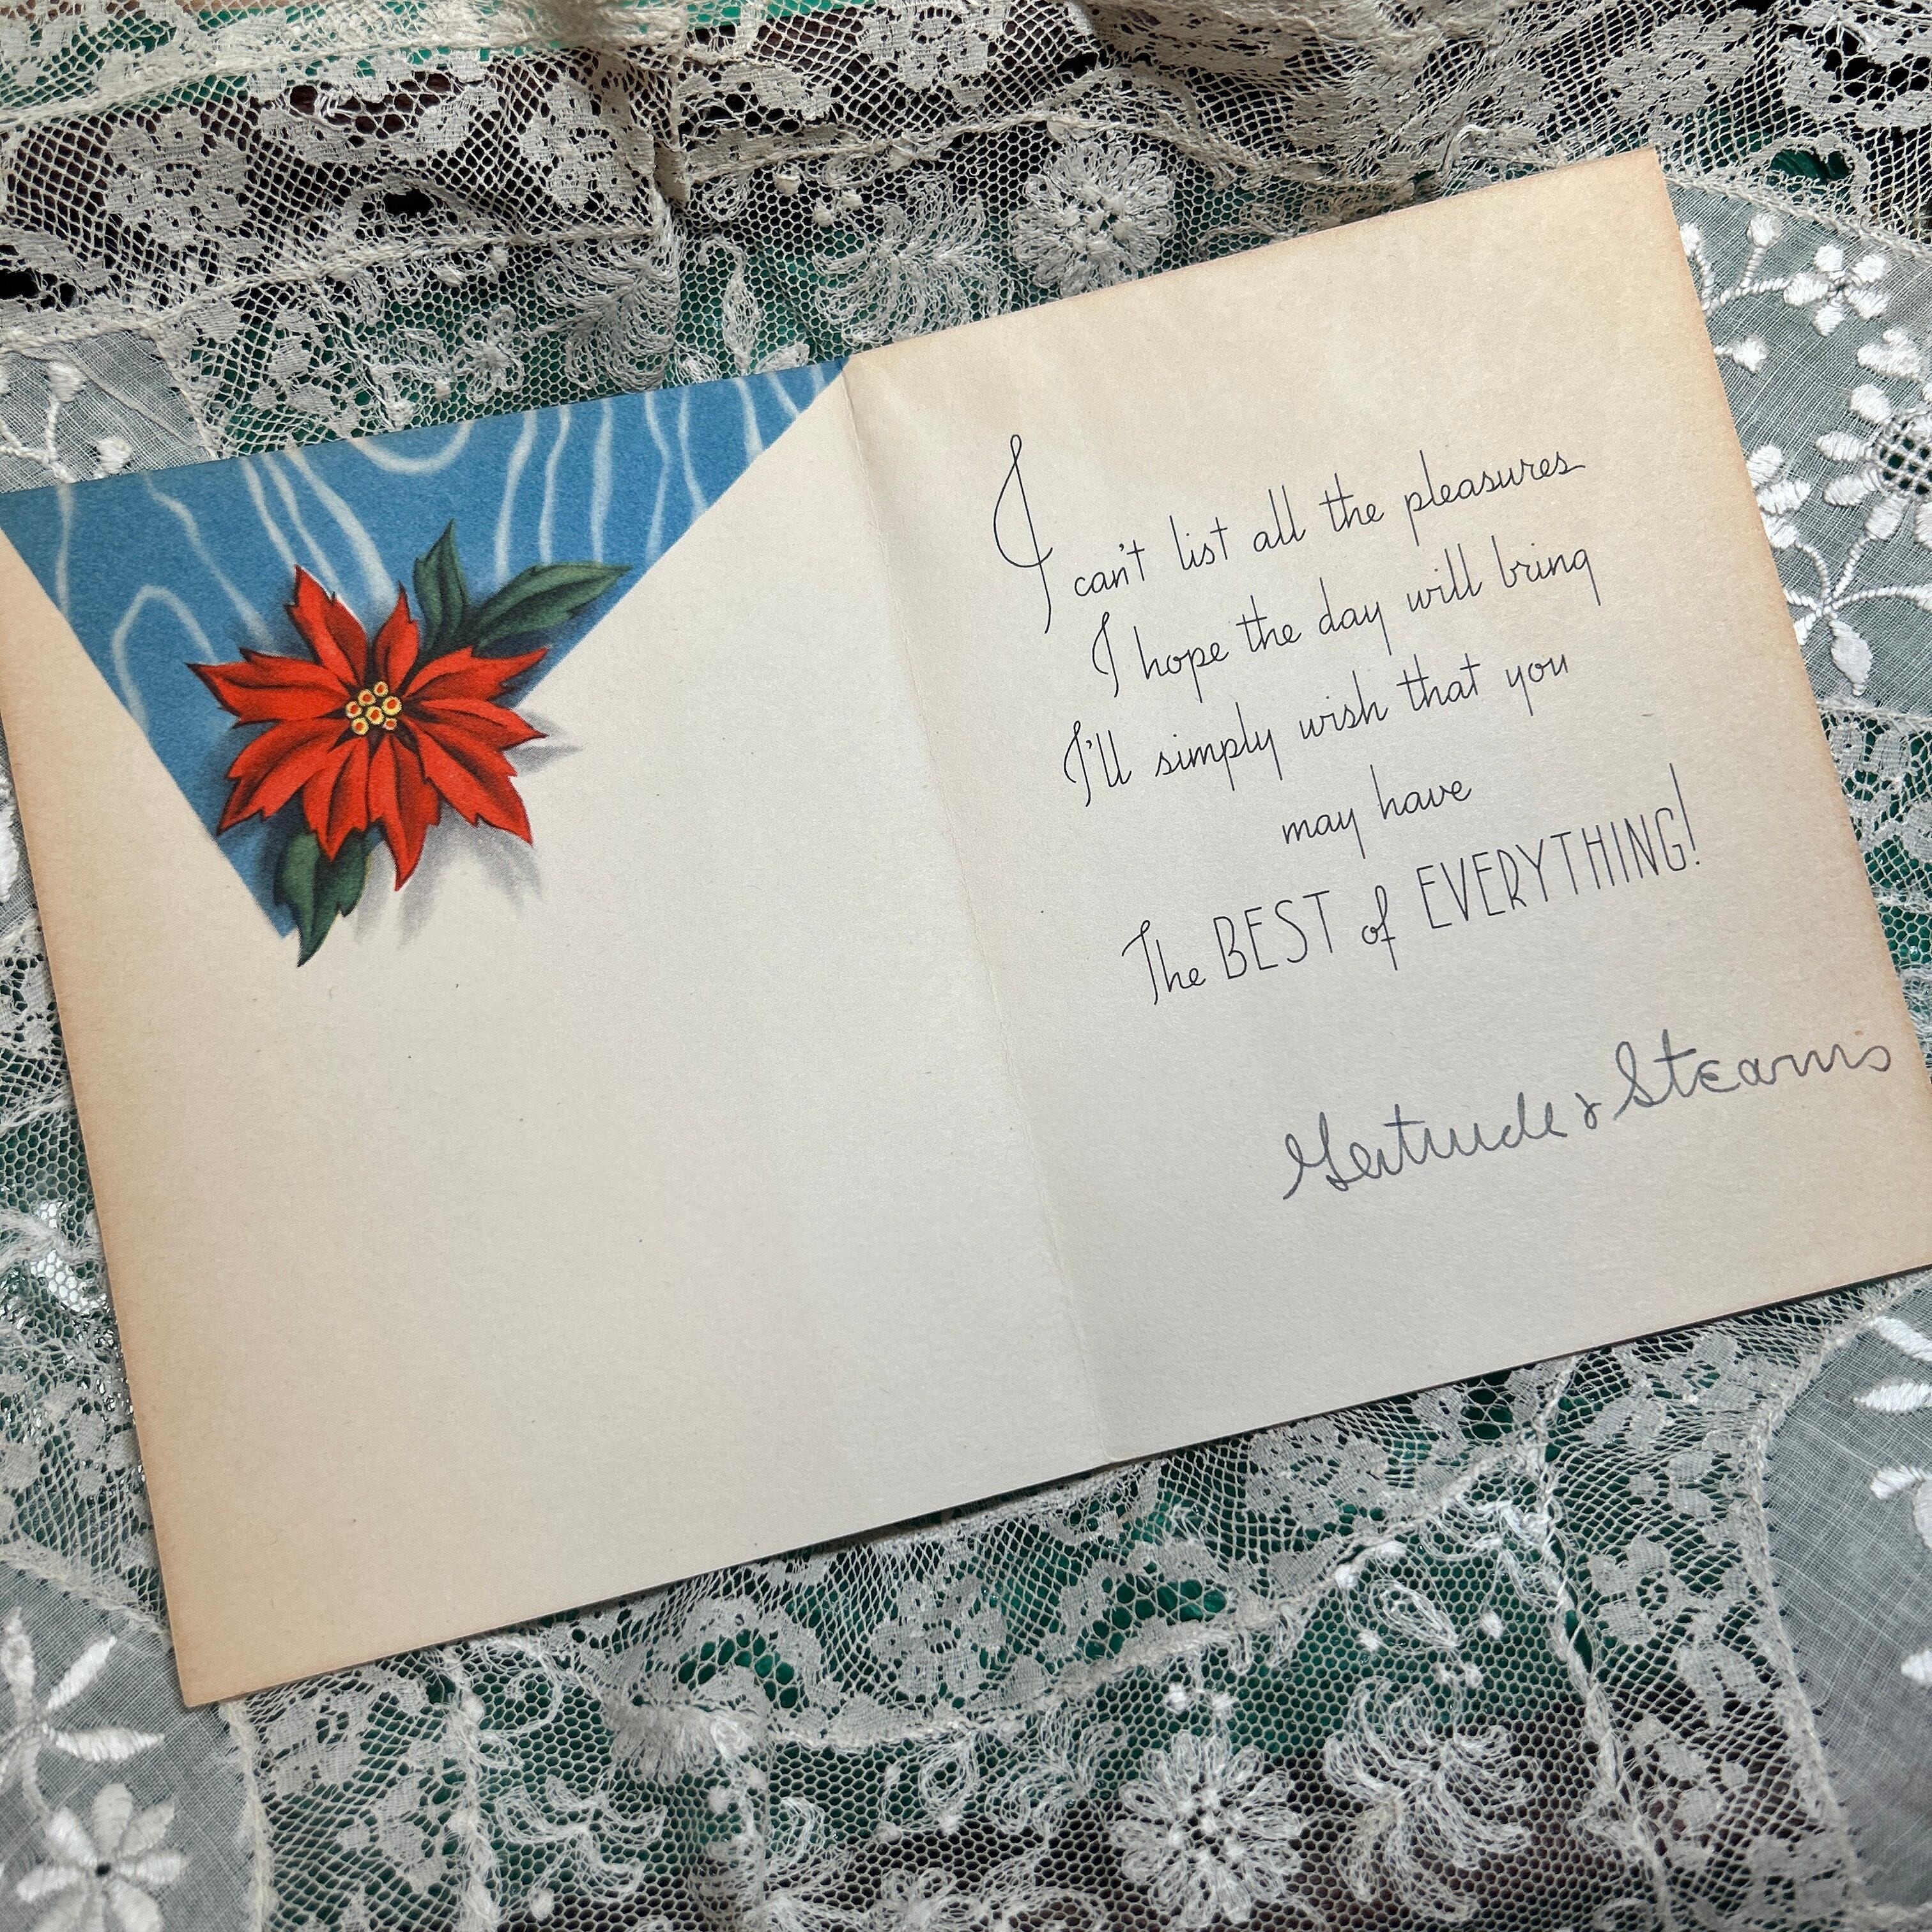 I can't list all the pleasures
I hope the day will bring
I'll simply wish that you
may have
The BEST of EVERYTHING!
Gertrude & Stearns